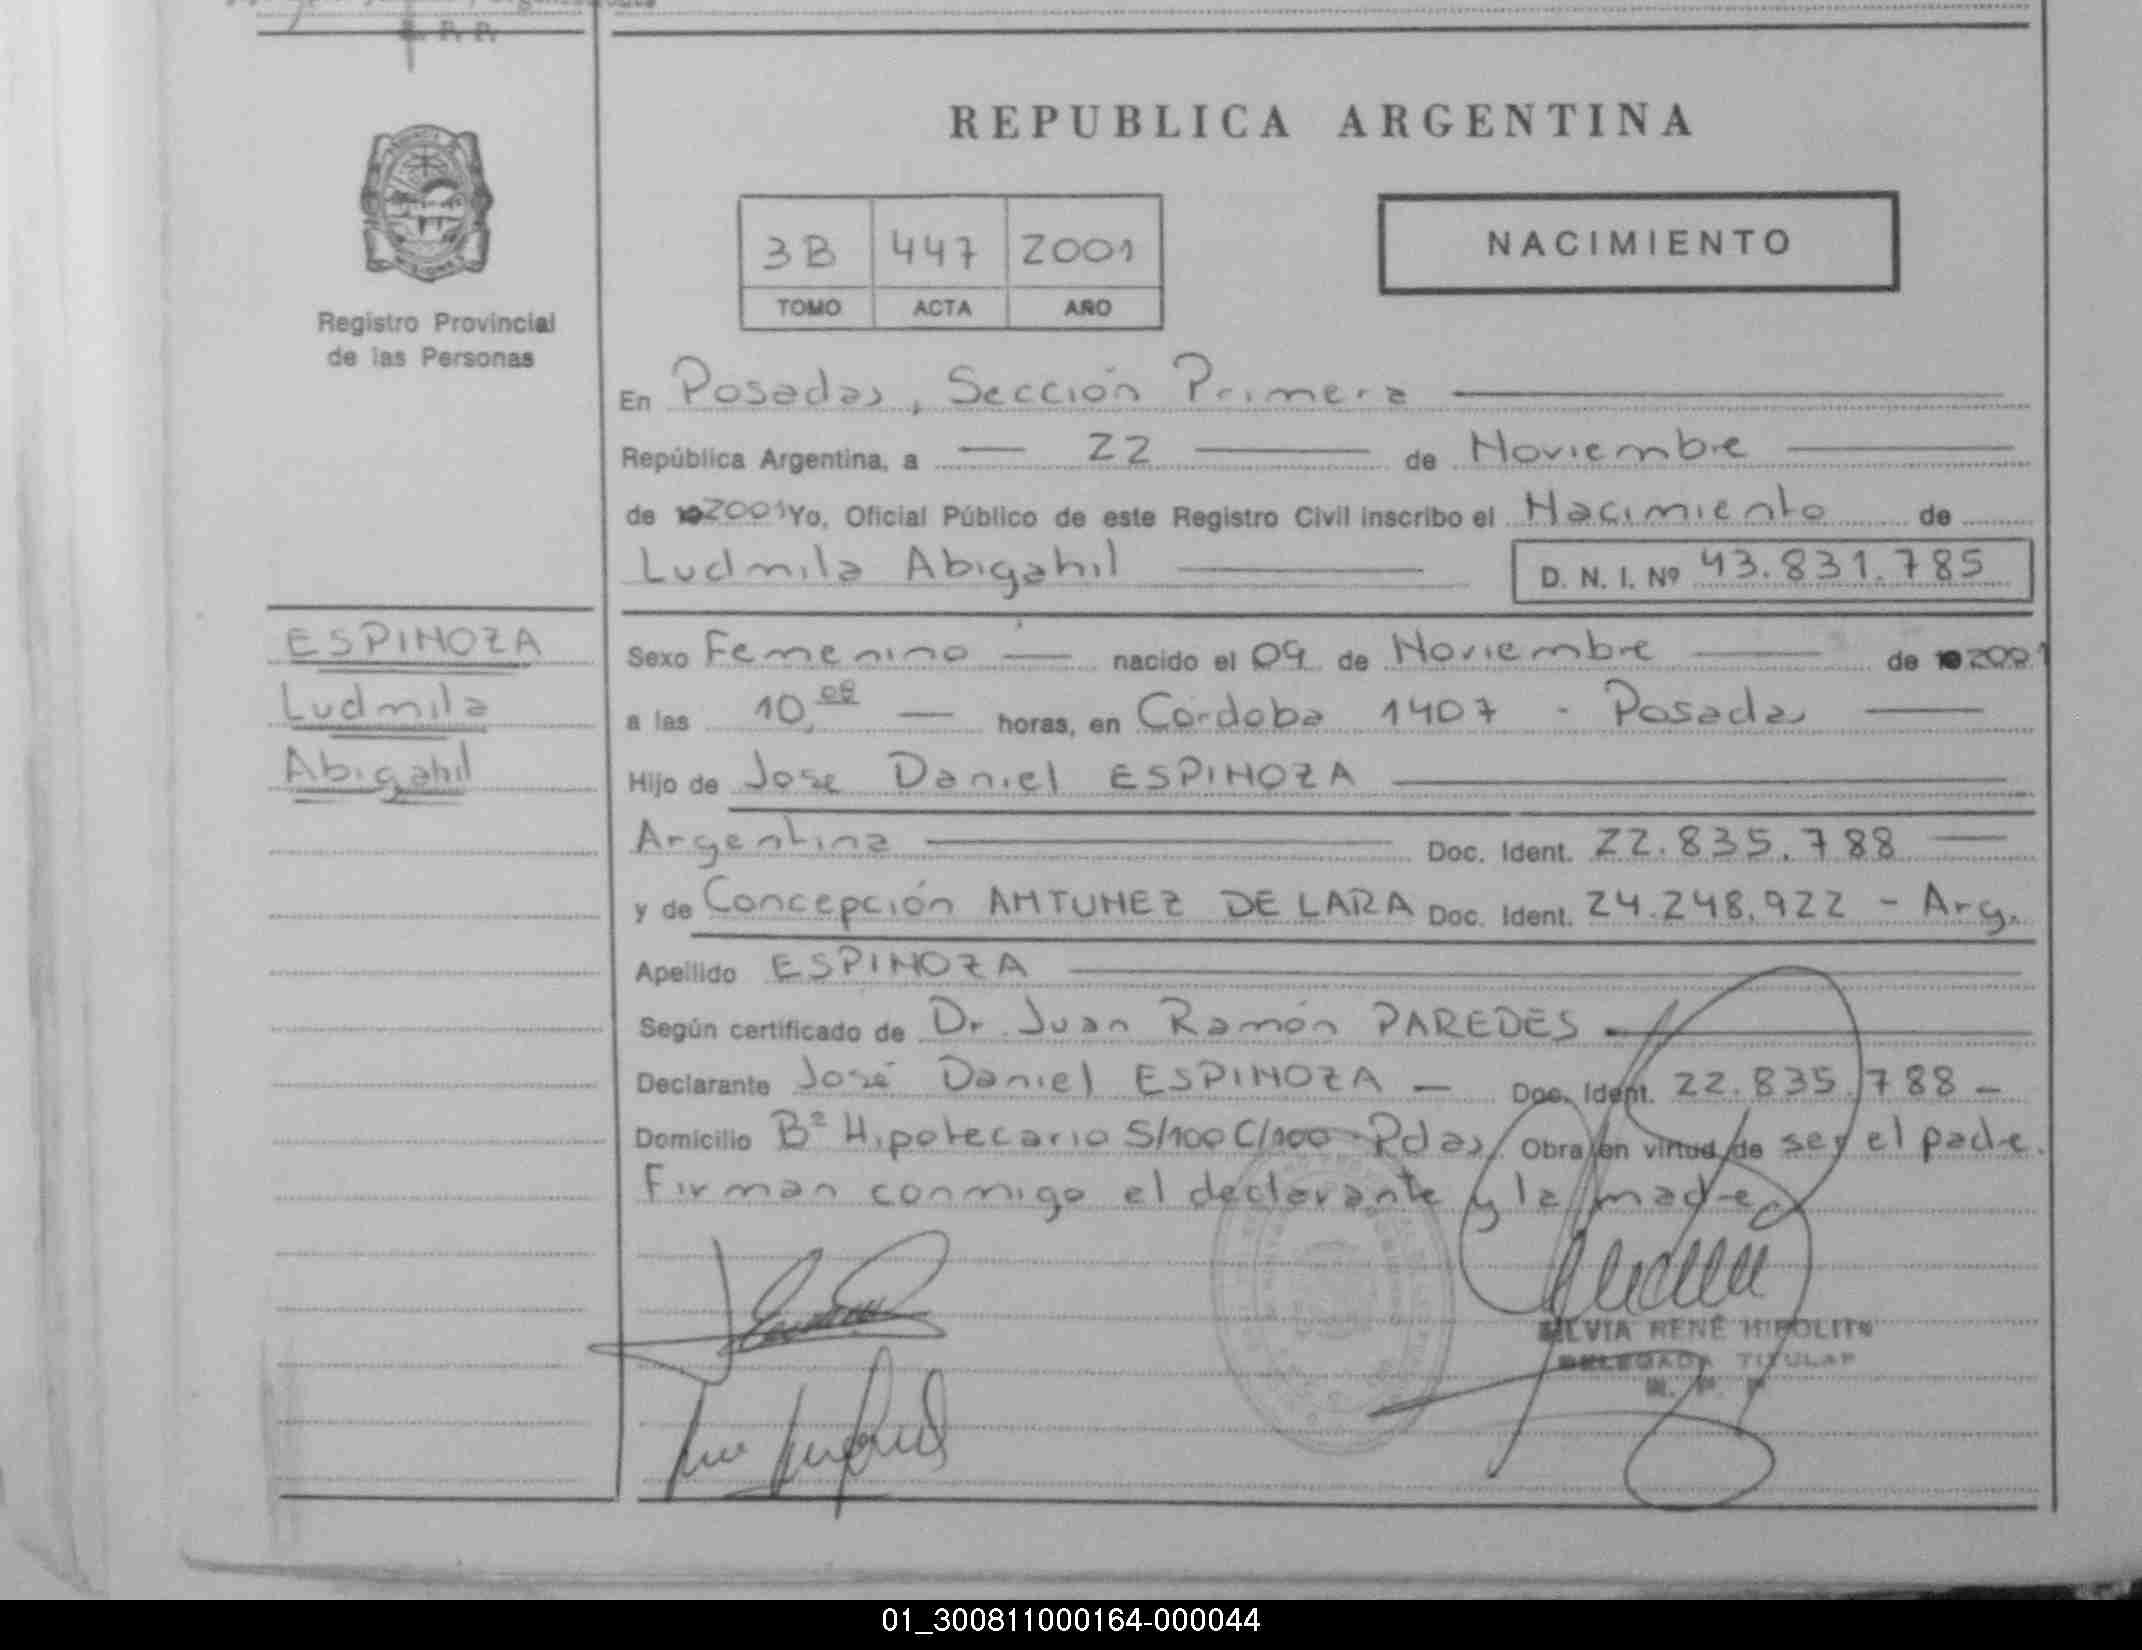 REPUBLICA ARGENTINA
3B 447 2001
TOMO ACTA AÑO
NACIMIENTO
Registro Provincial
de las Personas
En Posadas, Sección Primera
República Argentina, a 22 de Noviembre
de 2001 Yo, Oficial Público de este Registro Civil inscribo el Nacimiento de
Ludmila Abigahil D. N. I. Nº 43.831.785
ESPINOZA
Ludmila
Abigahil
Sexo Femenino nacido el 09 de Noviembre de 2001
a las 10,08 horas, en Córdoba 1407 - Posadas
Hijo de Jose Daniel ESPINOZA
Argentina Doc. Ident. 22.835.788
y de Concepción ANTUNEZ DE LARA Doc. Ident. 24.248.922 - Arg.
Apellido ESPINOZA
Según certificado de Dr. Juan Ramón PAREDES
Declarante José Daniel ESPINOZA Doc. Ident. 22.835.788
Domicilio Bº Hipotecario S/100 C/100 Pdas. Obra en virtud de ser el padre.
Firman conmigo el declarante y la madre
SILVIA RENÉ HIPOLITO
DELEGADA TITULAR
01_300811000164-000044